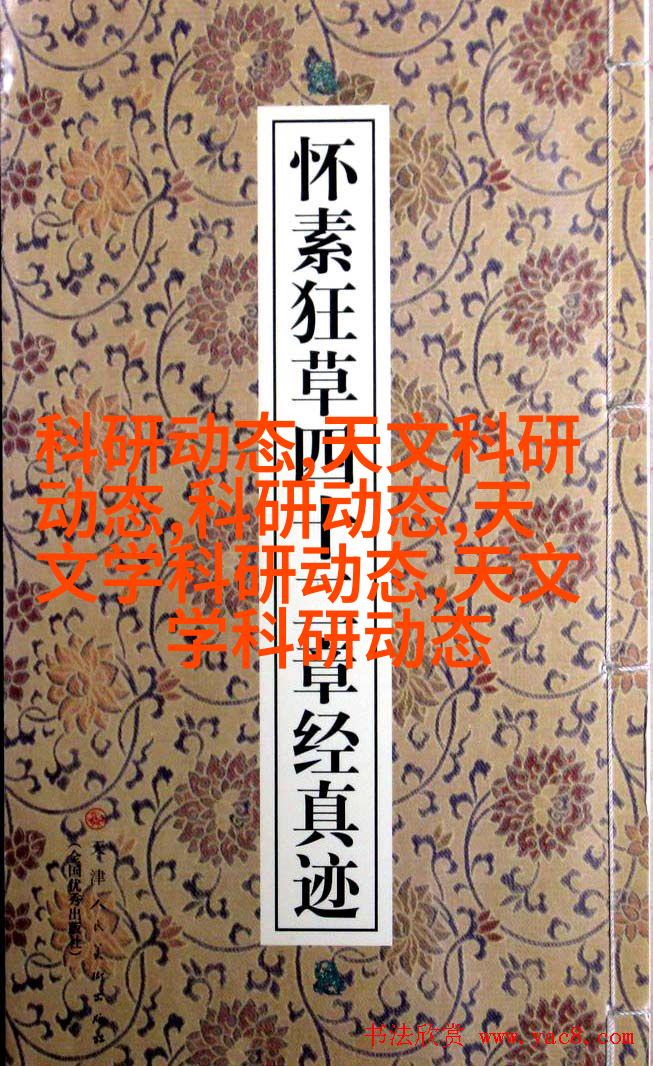 怀素狂草四十二章经真迹
科研动态,天文科研
动态,科研动态,天
文学科研动态,天文
学科研动态
天津人民美术出版社
(全国优秀出版社)
书法欣赏 www.yac8.com